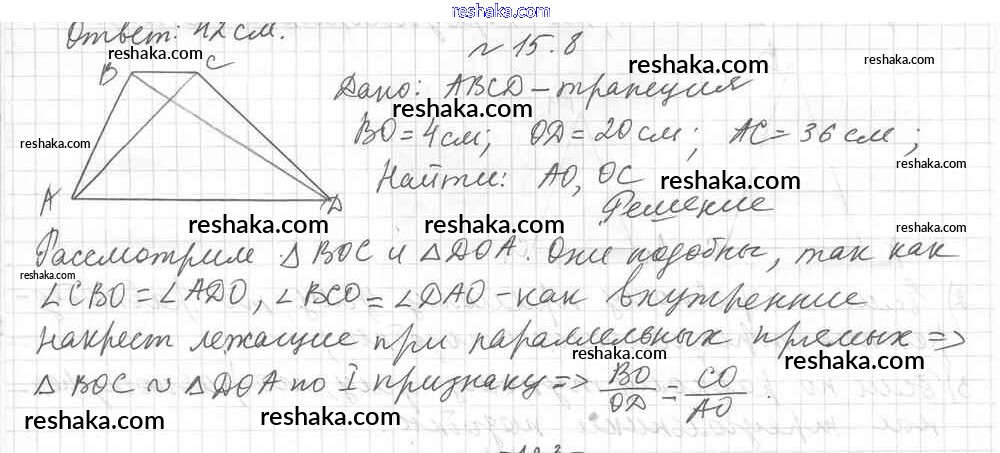 reshaka.com
Ответ: 42 см.
reshaka.com
№ 15.8
reshaka.com
B C
Дано: ABCD – трапеция
reshaka.com
BO = 4 см; OD = 20 см; AC = 36 см;
reshaka.com
reshaka.com
Найти: AO, OC
reshaka.com
A D
Решение
reshaka.com reshaka.com reshaka.com
Рассмотрим △ BOC и △DOA. Они подобны, так как
reshaka.com
∠CBO = ∠ADO, ∠BCO = ∠DAO – как внутренние
накрест лежащие при параллельных прямых =>
reshaka.com reshaka.com
△ BOC ~ △DOA по I признаку => BO/OD = CO/AO.
reshaka.com reshaka.com reshaka.com